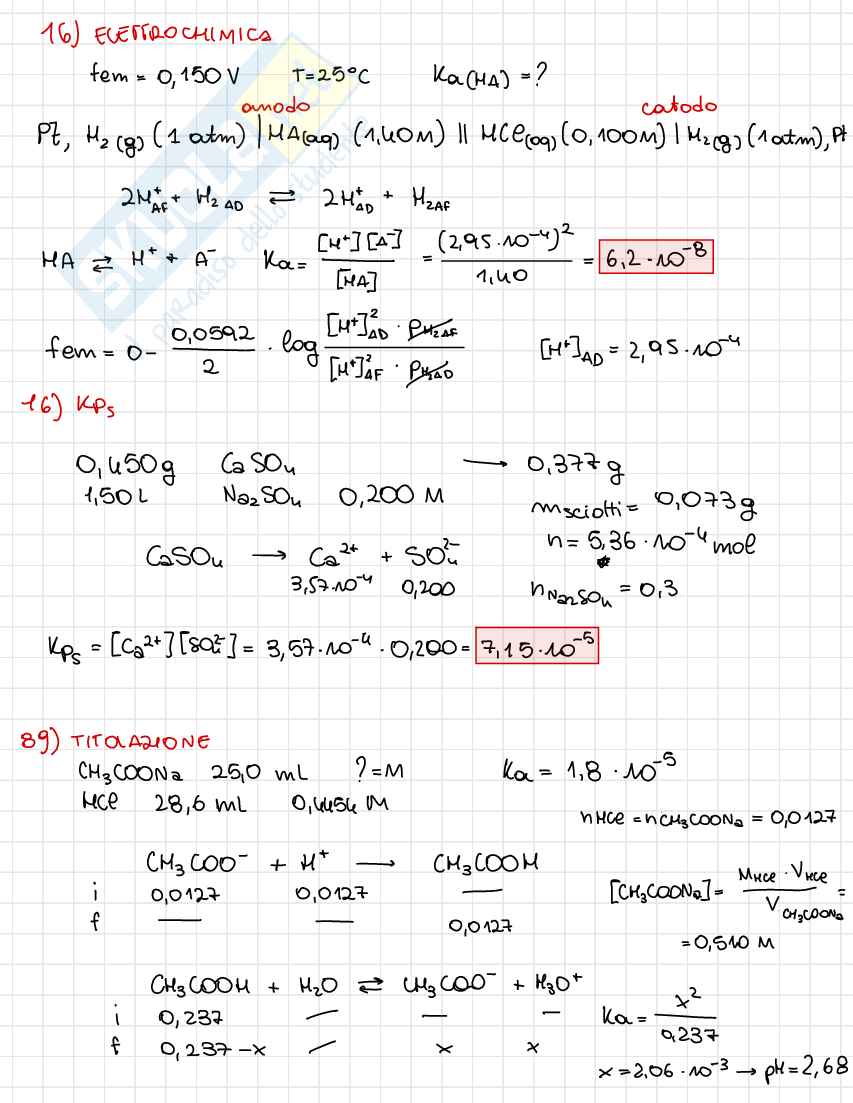 16) ELETTROCHIMICA
fem = 0,150 V   T=25°C   Ka(HA) = ?
anodo   catodo
Pt, H₂(g) (1 atm) | HA(aq) (1,40M) || HCl(aq) (0,100M) | H₂(g) (1atm), Pt
2H⁺AF + H₂AD ⇄ 2H⁺AD + H₂AF
HA ⇄ H⁺ + A⁻   Ka = [H⁺][A⁻] / [HA] = (2,95·10⁻⁴)² / 1,40 = 6,2·10⁻⁸
fem = 0 - 0,0592/2 · log [H⁺]²AD · pH₂AF / [H⁺]²AF · pH₂AD   [H⁺]AD = 2,95·10⁻⁴
16) KPs
0,450g   CaSO₄   → 0,377g
1,50L   Na₂SO₄   0,200 M
msciolti = 0,073g
n = 5,36·10⁻⁴ mol
CaSO₄ → Ca²⁺ + SO₄²⁻
3,57·10⁻⁴   0,200
nNa₂SO₄ = 0,3
KPs = [Ca²⁺][SO₄²⁻] = 3,57·10⁻⁴ · 0,200 = 7,15·10⁻⁵
89) TITOLAZIONE
CH₃COONa   25,0 mL   ? = M   Ka = 1,8·10⁻⁵
HCl   28,6 mL   0,4454 M
nHCl = nCH₃COONa = 0,0127
CH₃COO⁻ + H⁺ → CH₃COOH
i   0,0127   0,0127   —
f   —   —   0,0127
[CH₃COONa] = MHCl · VHCl / VCH₃COONa =
= 0,510 M
CH₃COOH + H₂O ⇄ CH₃COO⁻ + H₃O⁺
i   0,237   —   —   —
f   0,237-x   —   x   x
Ka = x² / 0,237
x = 2,06·10⁻³ → pH = 2,68